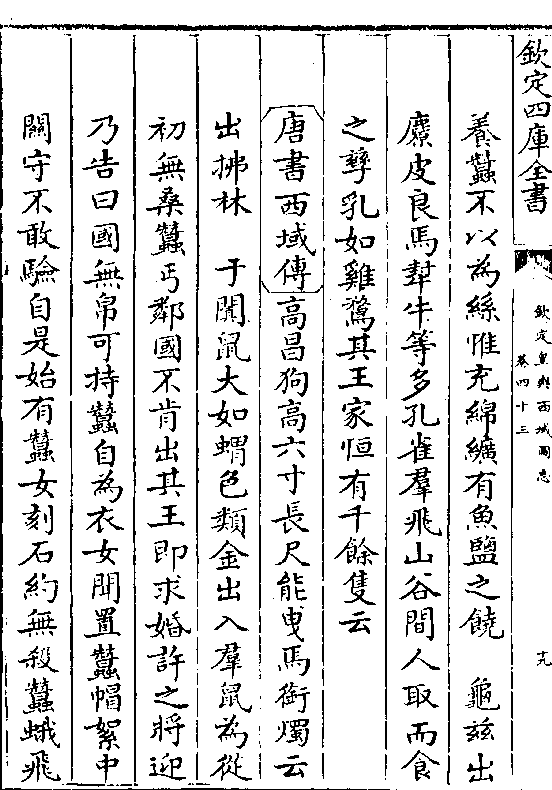 欽定四庫全書
欽定皇輿西域圖志
卷四十三
十九
養蠶不以為絲惟充綿纊有魚鹽之饒　龜兹出
麖皮良馬犎牛等多孔雀羣飛山谷間人取而食
之孳乳如雞鶩其王家恒有千餘隻云
唐書西域傳高昌狗高六寸長尺能曳馬銜燭云
出拂林　于闐鼠大如蝟色類金出入羣鼠為從
初無桑蠶丐鄰國不肯出其王即求婚許之將迎
乃告曰國無帛可持蠶自為衣女聞置蠶帽絮中
關守不敢驗自是始有蠶女刻石約無殺蠶蛾飛